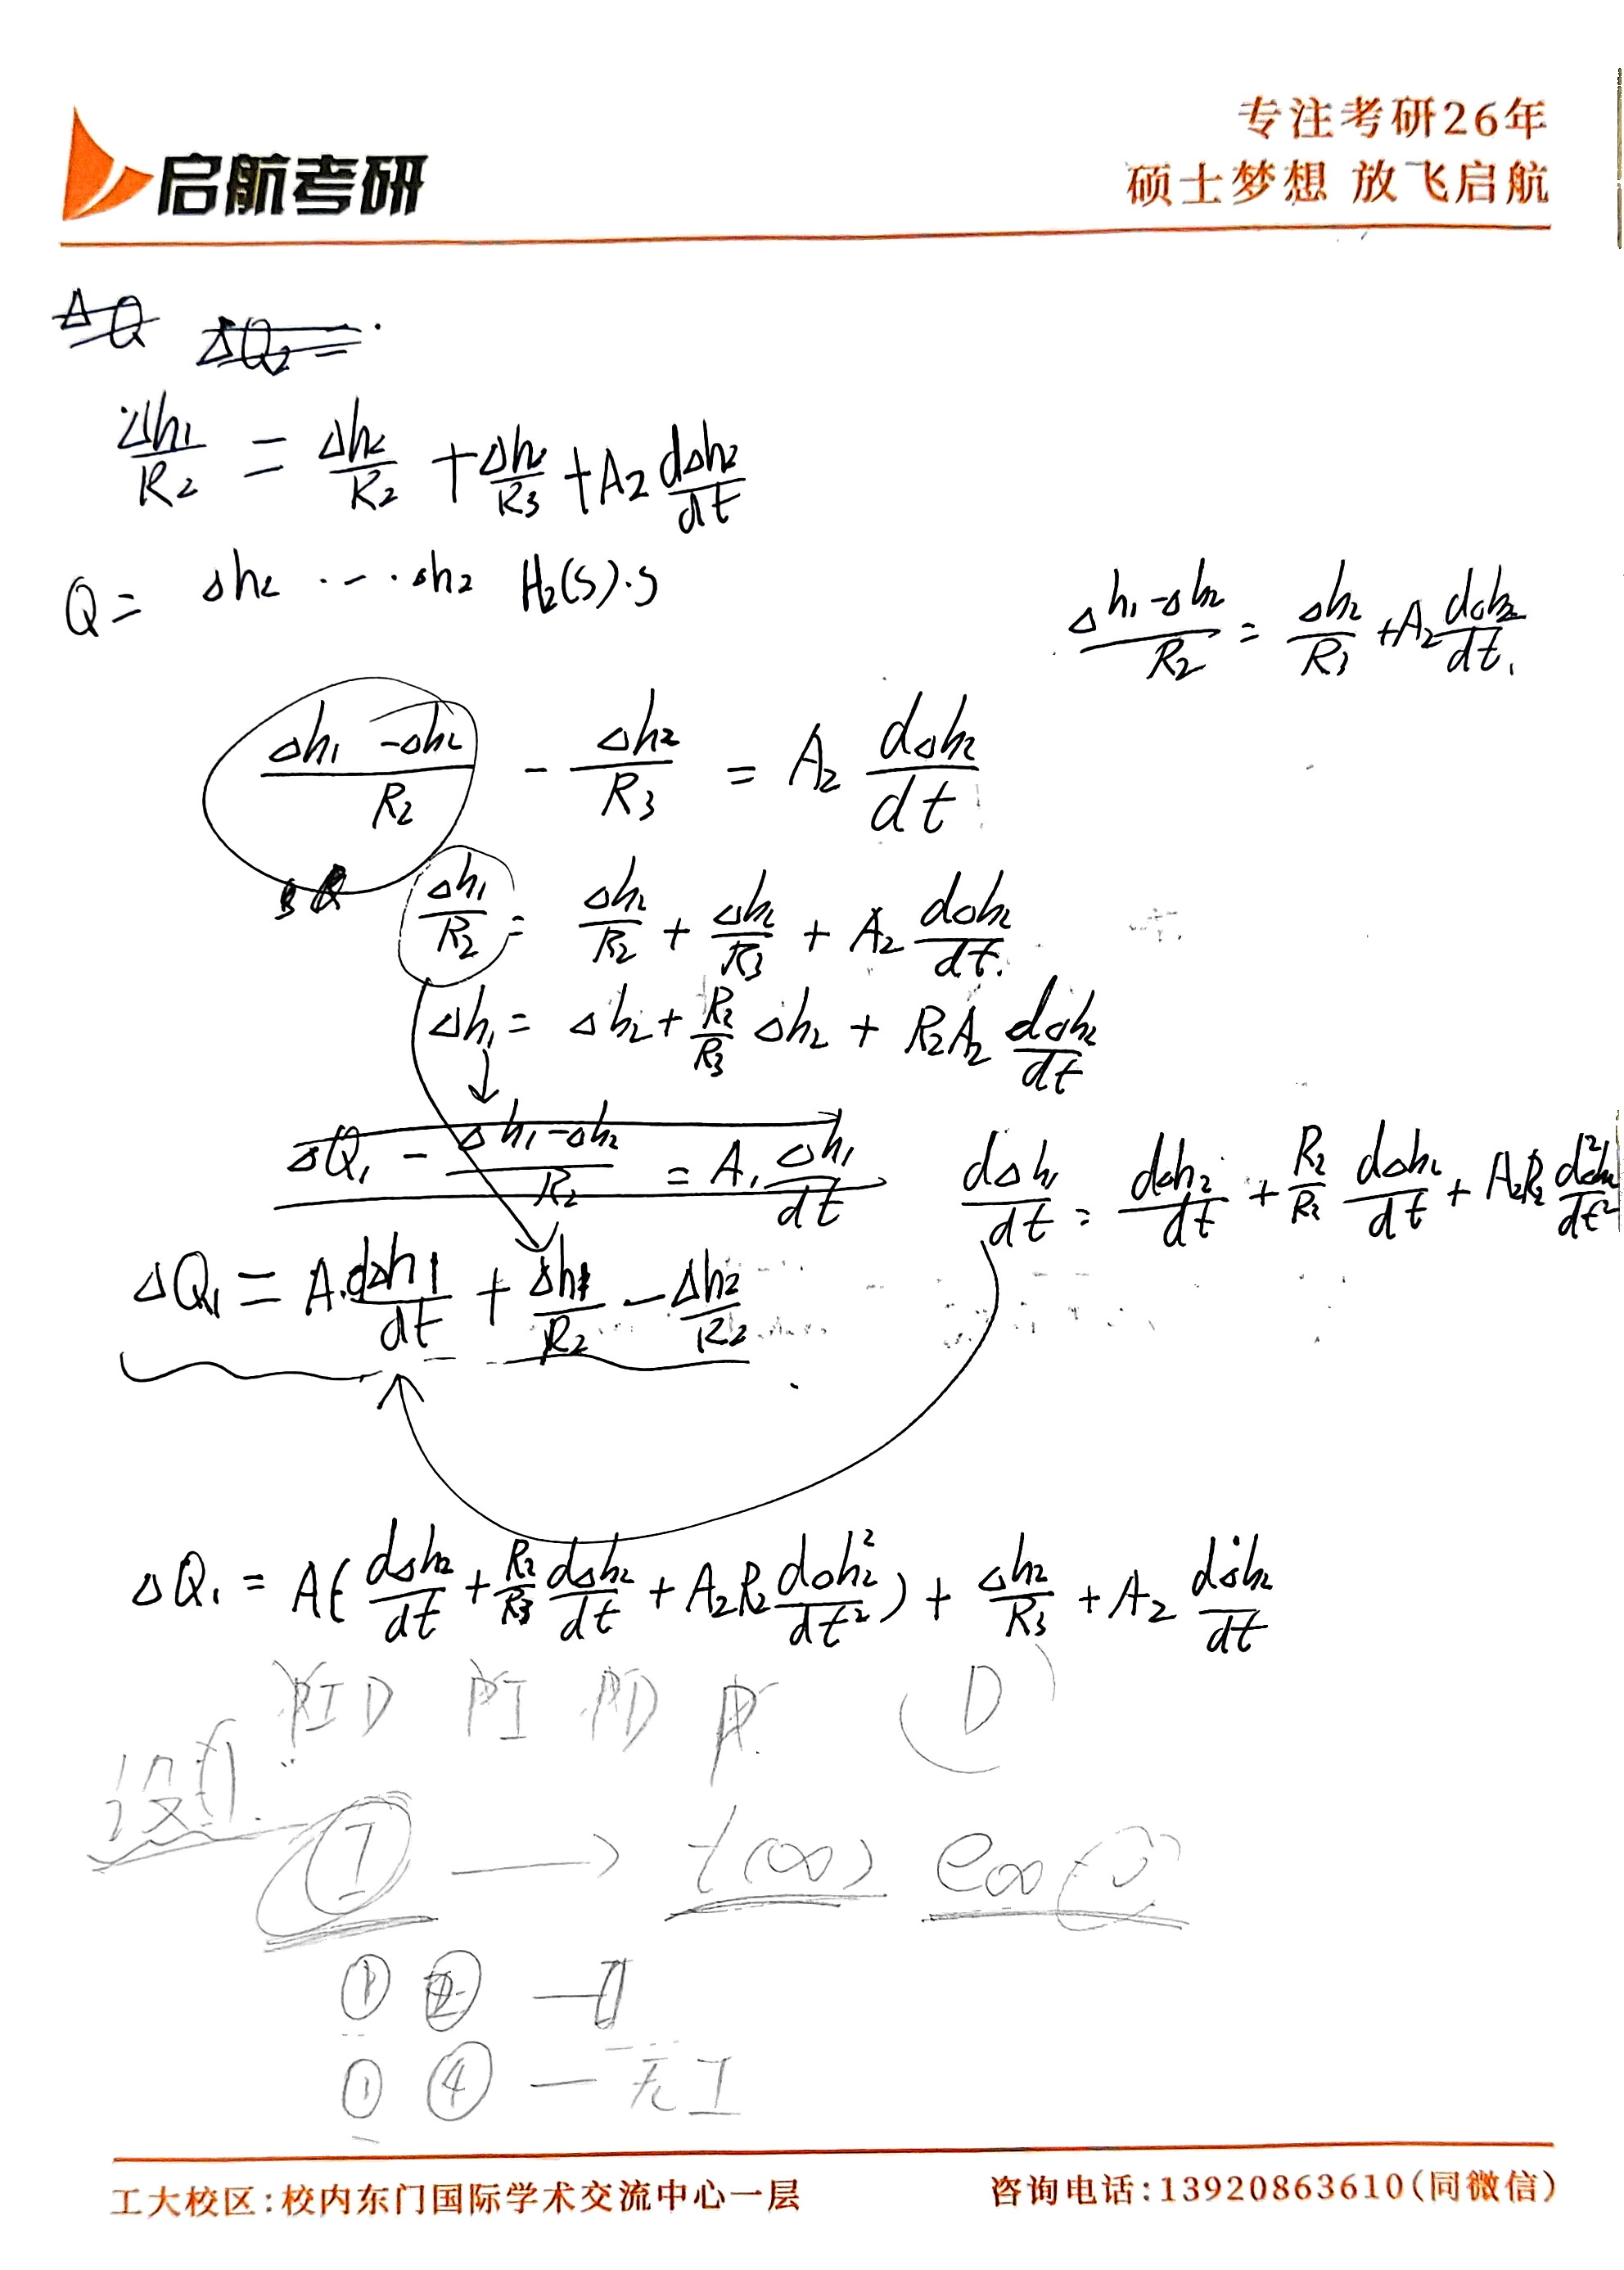 启航考研
专注考研26年
硕士梦想 放飞启航
ΔQ ΔQ₂ =
Δh₁/R₂ = Δh₂/R₂ + Δh₂/R₃ + A₂ dΔh₂/dt
Q = Δh₂ ... Δh₂ H₂(S)·S
(Δh₁-Δh₂)/R₂ = Δh₂/R₃ + A₂ dΔh₂/dt
(Δh₁-Δh₂)/R₂ - Δh₂/R₃ = A₂ dΔh₂/dt
Δh₁/R₂ = Δh₂/R₂ + Δh₂/R₃ + A₂ dΔh₂/dt
Δh₁ = Δh₂ + R₂/R₃ Δh₂ + R₂A₂ dΔh₂/dt
ΔQ₁ - (Δh₁-Δh₂)/R₂ = A₁ Δh₁/dt
dΔh₁/dt = dΔh₂/dt + R₂/R₃ dΔh₂/dt + A₂R₂ d²Δh₂/dt²
ΔQ₁ = A₁ dΔh₁/dt + Δh₁/R₂ - Δh₂/R₂
ΔQ₁ = A₁( dΔh₂/dt + R₂/R₃ dΔh₂/dt + A₂R₂ dΔh₂²/dt² ) + Δh₂/R₃ + A₂ dΔh₂/dt
PID PI PD P D
I → t(∞) e∞
① ② — I
① ④ — 无 I
工大校区:校内东门国际学术交流中心一层
咨询电话:13920863610(同微信)